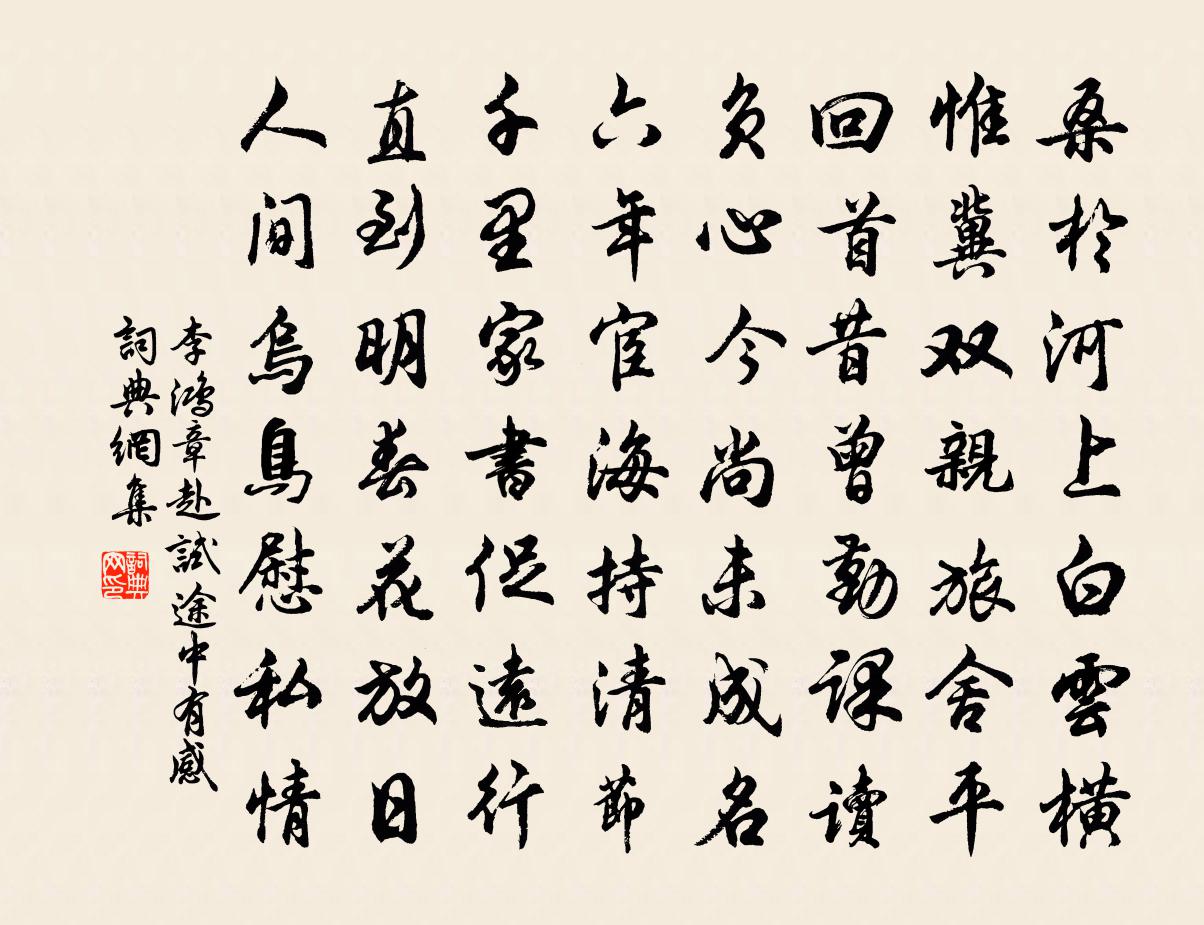 桑於河上白雲橫
惟冀双親旅舍平
回首昔曾勤課讀
負心今尚未成名
六年宦海持清節
千里家書促遠行
直到明春花放日
人間烏鳥慰私情
李鴻章赴試途中有感
詞典網集
詞典
网印